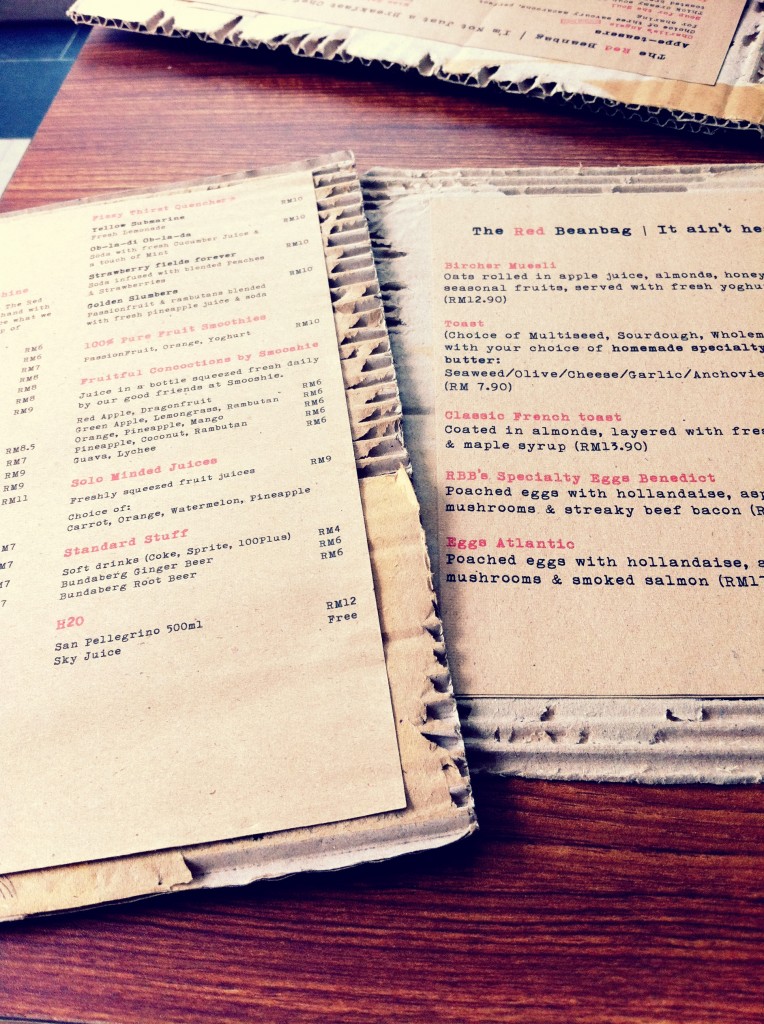 The Red Beanbag | I's Not Just a Breakfast
Appe-teasers
for sharing
Choice of three
Fizzy Thirst Quenchers
Yellow Submarine RM10
Fresh Lemonade
Ob-la-di Ob-la-da RM10
Soda with fresh Cucumber Juice &
a touch of Mint
Strawberry fields forever RM10
Soda infused with blended Peaches
& Strawberries
Golden Slumbers RM10
Passionfruit & rambutans blended
with fresh pineapple juice & soda
100% Pure Fruit Smoothies
Passionfruit, Orange, Yoghurt RM10
Fruitful Concoctions by Smooshie
Juice in a bottle squeezed fresh daily
by our good friends at Smooshie.
Red Apple, Dragonfruit RM6
Green Apple, Lemongrass, Rambutan RM6
Orange, Pineapple, Mango RM6
Pineapple, Coconut, Rambutan RM6
Guava, Lychee RM6
Solo Minded Juices
Freshly squeezed fruit juices RM9
Choice of:
Carrot, Orange, Watermelon, Pineapple
Standard Stuff
Soft drinks (Coke, Sprite, 100Plus) RM4
Bundaberg Ginger Beer RM6
Bundaberg Root Beer RM6
H2O
San Pellegrino 500ml RM12
Sky Juice Free
bine
The Red
hand with
ce what we
p of
RM6
RM6
RM7
RM8
RM8
RM8
RM9
RM8.5
RM7
RM9
RM9
RM11
M7
M7
M7
7
The Red Beanbag | It ain't he
Bircher Muesli
Oats rolled in apple juice, almonds, honey
seasonal fruits, served with fresh yoghu
(RM12.90)
Toast
(Choice of Multiseed, Sourdough, Wholem
with your choice of homemade specialty
butter:
Seaweed/Olive/Cheese/Garlic/Anchovie
(RM 7.90)
Classic French toast
Coated in almonds, layered with fres
& maple syrup (RM13.90)
RBB's Specialty Eggs Benedict
Poached eggs with hollandaise, asp
mushrooms & streaky beef bacon (R
Eggs Atlantic
Poached eggs with hollandaise, a
mushrooms & smoked salmon (RM17